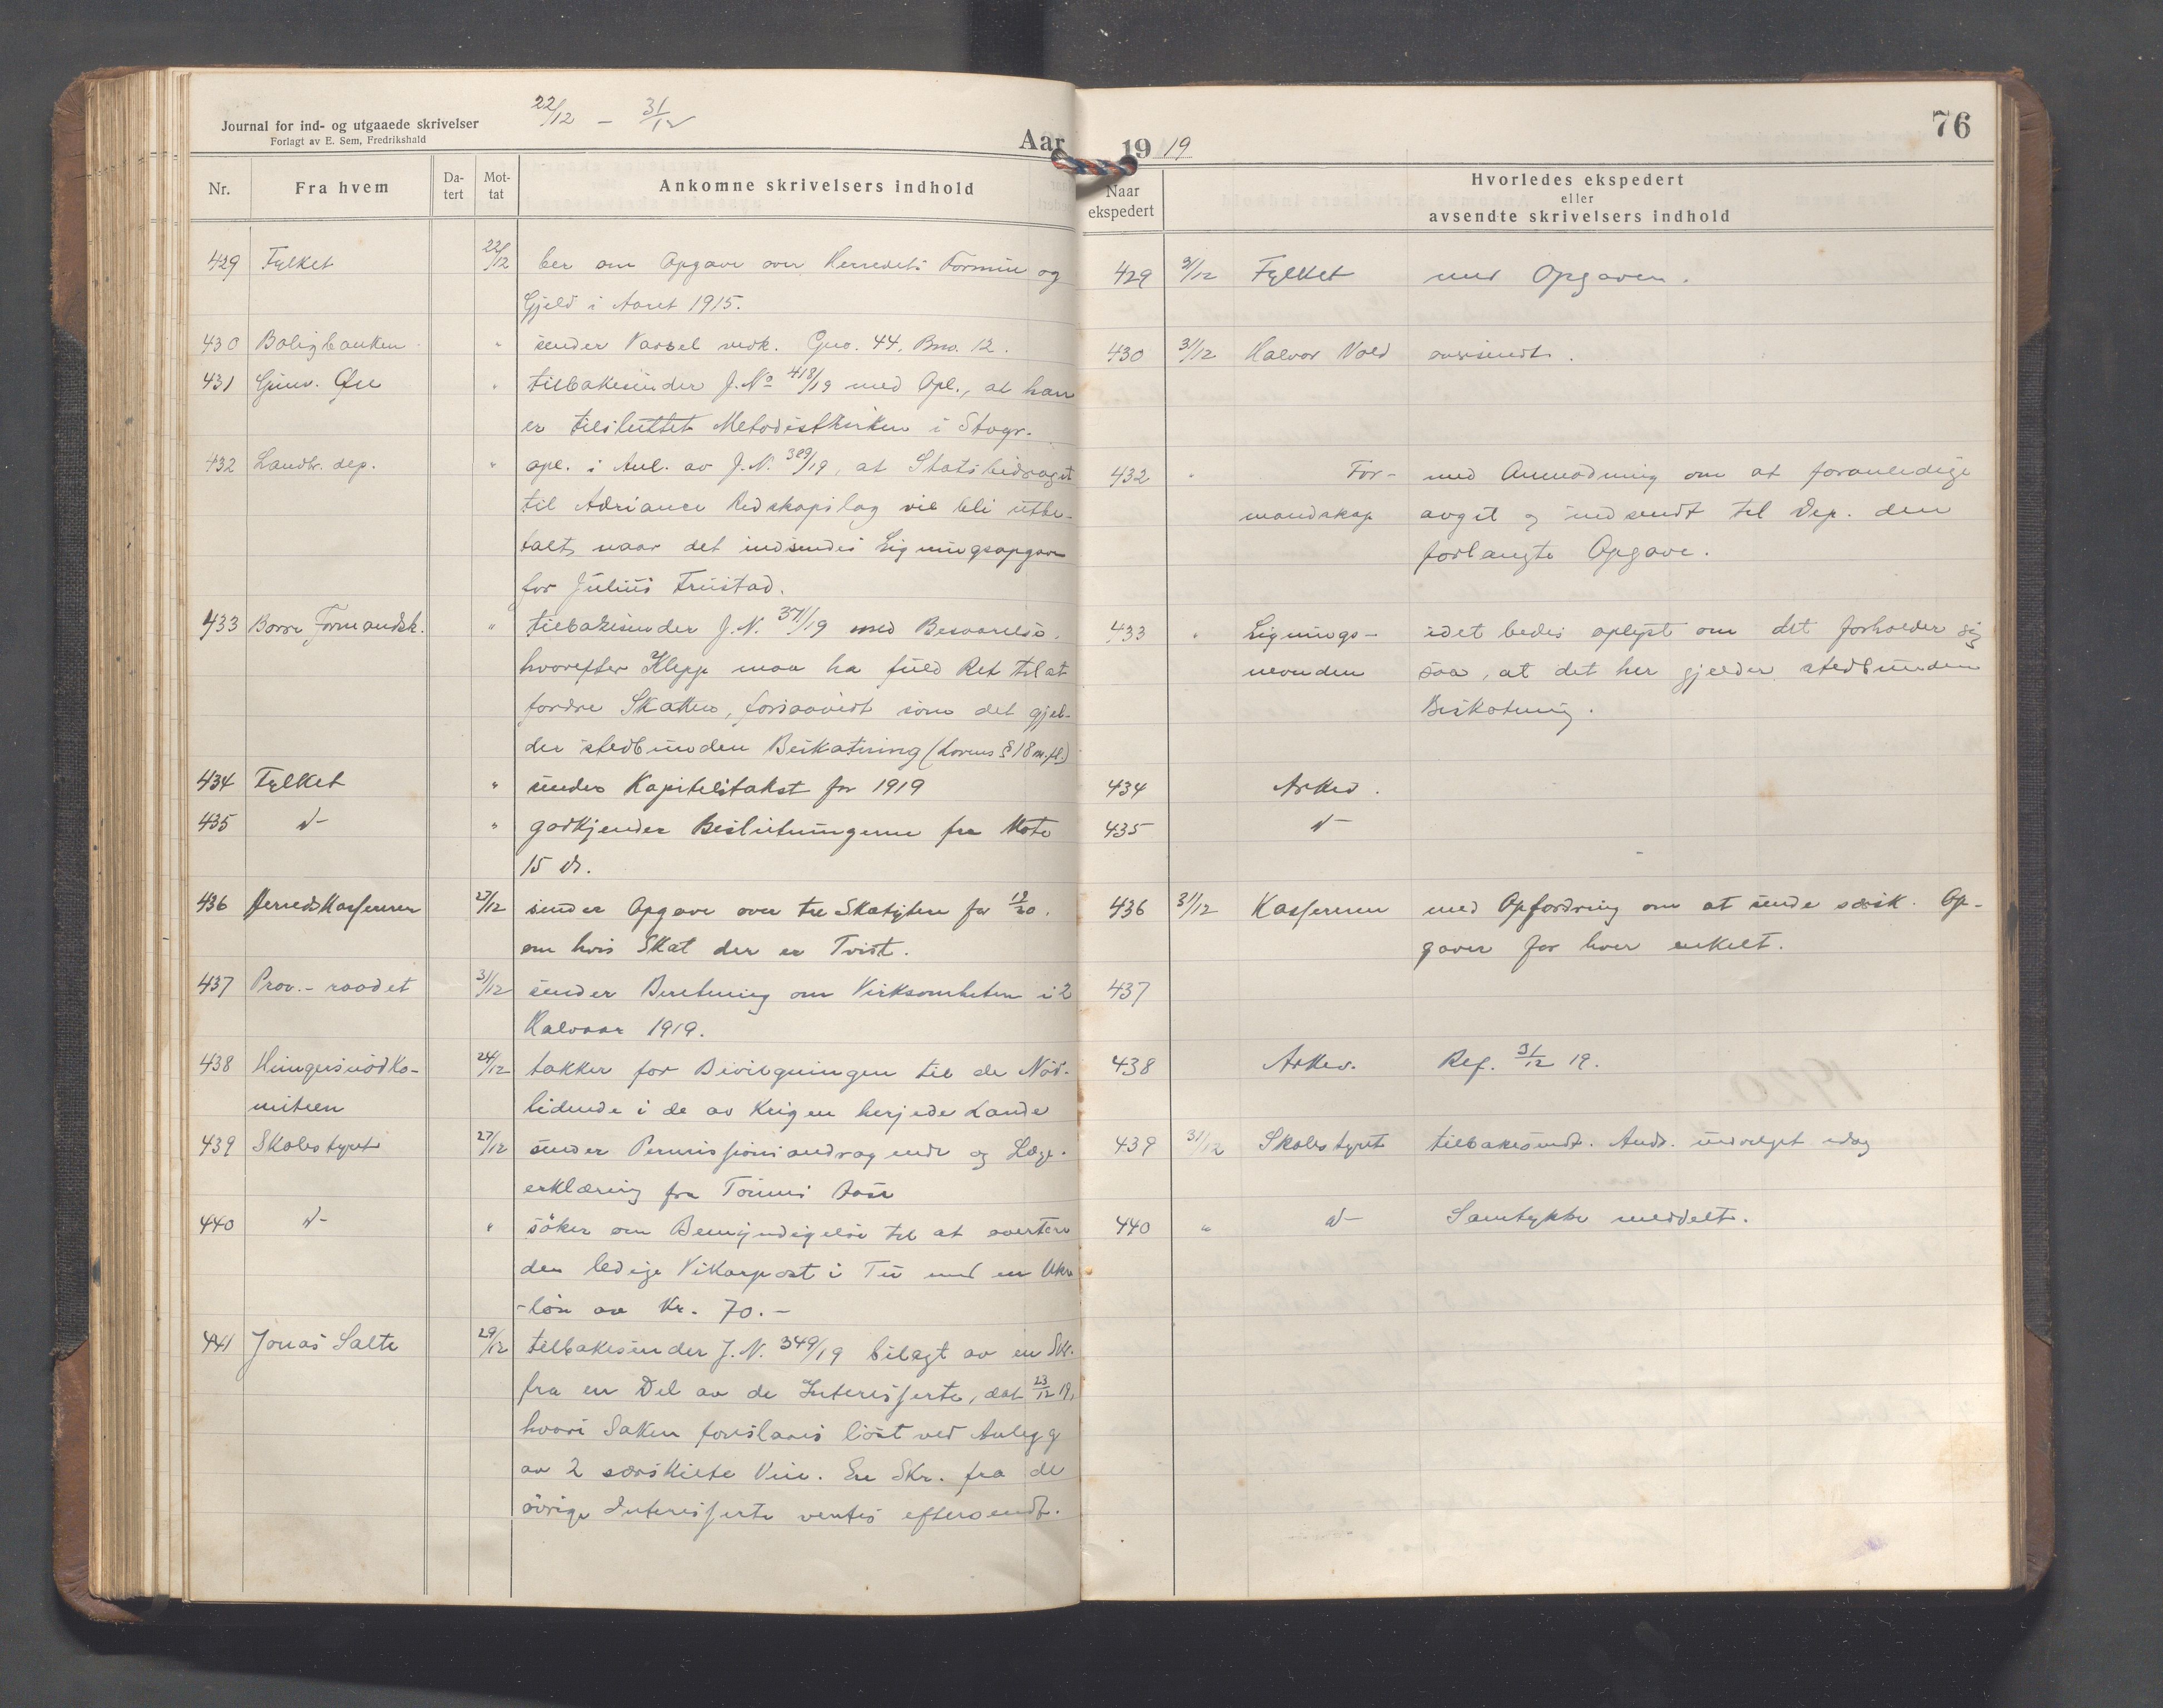 22/12 – 31/12
Journal for ind- og utgaaede skrivelser
Forlagt av E. Sem, Fredrikshald
Aar
Nr. Fra hvem Da-tert Mot-tat Ankomne skrivelsers indhold
429 Fylket 22/12 ber om Opgave over Herredets Formue og
Gjeld i Aaret 1915.
430 Boligbanken " sender Varsel vedk. Gno. 44, Bno. 12.
431 Gunv. " tilbakesender J. No 418/19 med Opl., at han
er tilsluttet Metodistkirken i Stvgr.
432 Landbr. dep. " opl. i Anl. av J.N. 389/19, at Statsbidraget
til Adriance Redskapslag vil bli utbe-
talt, naar det indsendes Ligningsopgave
for Julius Frustad.
433 Borre Formandsk. " tilbakesender J.N. 371/19 med Besvarelse,
hvorefter Klepp maa ha fuld Ret til at
fordre Skatten, forsaavidt som det gjel-
der stedbunden Beskatning (Lovens § 18 m. fl.)
434 Fylket " sender Kapitelstakst for 1919
435 d- " godkjender Beslutningerne fra Møte
15 ds.
436 Herredskassereren 27/12 sender Opgave over tre Skatytere for 19/20,
om hvis Skat der er Tvist.
437 Prov.-raadet 31/12 sender Beretning om Virksomheten i 2
Halvaar 1919.
438 Hungersnödko- 24/12 takker for Bevilgningen til de Nöd-
miteen lidende i de av Krigen herjede Lande
439 Skolestyret 27/12 sender Permissionsandragende og Læge-
erklæring fra Tönnes
440 d- " söker om Bemyndigelse til at avertere
den ledige Vikarpost i Tu med en Uke-
-lön av Kr. 70.-
441 Jonas Salte 29/12 tilbakesender J.N. 349/19 bilagt av en Skr.
fra en Del av de Interesserte, dat 23/12 19,
hvori Saken foreslaaes löst ved Anlegg
av 2 særskilte Veie. En Skr. fra de
övrige Interesserte ventes eftersendt.
19 19
76
Naar ekspedert
Hvorledes ekspedert
eller
avsendte skrivelsers indhold
429 31/12 Fylket med Opgaven.
430 31/12 Halvor Vold oversendt.
432 " For- med Anmodning om at foranledige
mandskap avgit og indsendt til Dep. den
forlangte Opgave.
433 " Lignings- idet bedes oplyst om det forholder sig
nevnden saa, at det her gjelder stedbunden
Beskatning.
434 Arkiv.
435 d-
436 31/12 Kassereren med Opfordring om at sende særsk. Op-
gaver for hver enkelt.
437
438 Arkiv. Ref. 31/12 19.
439 31/12 Skolestyret tilbakesendt. Andr. indvilget idag
440 " d- Samtykke meddelt.